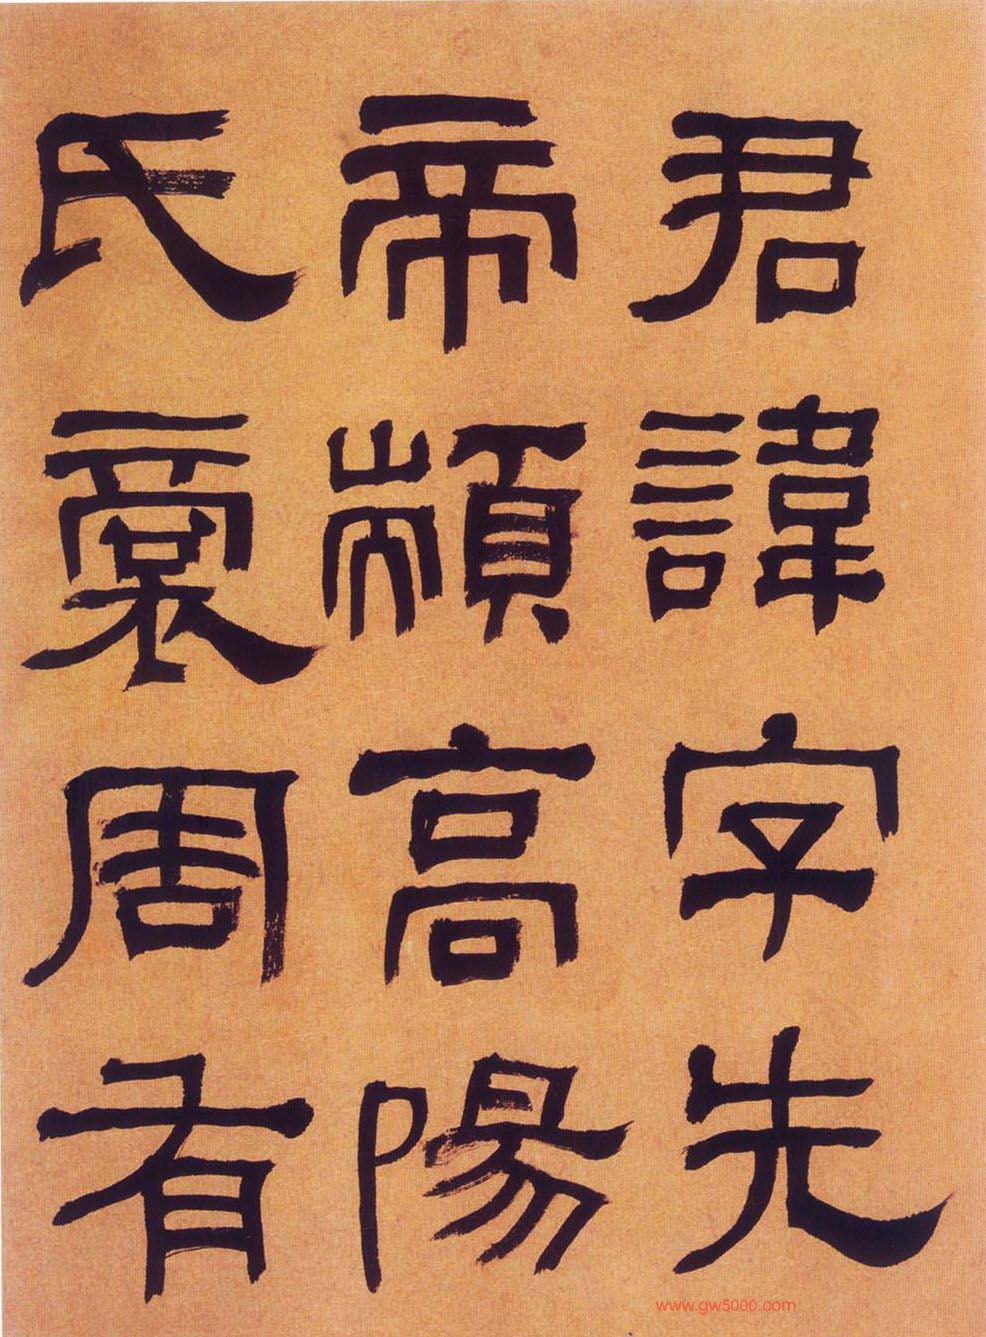 君諱字先
帝顓高陽
氏裔周有
www.gw5000.com